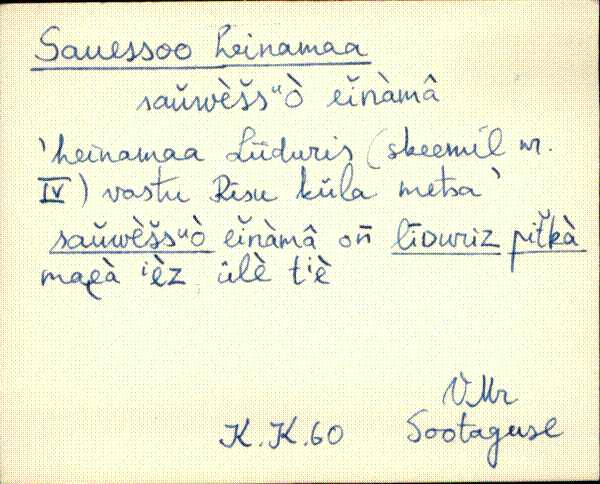 Sauessoo heinamaa
saŭwèšsᵘò eĭnàmâ
'heinamaa Lüduris (skeemil nr.
IV) vastu Risu küla metsa'
saŭwèšsᵘò eĭnàmâ on̄ līDuriz pit̆kà
mae̬à ⁱèz ülè tⁱè
V.Mr
K.K.60 Sootaguse